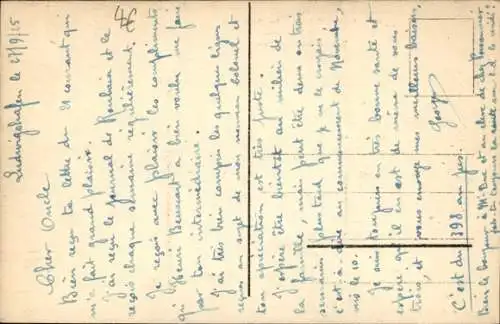 Ludwigshafen le 27/9/25
Cher Oncle
Bien reçu ta lettre du 21 courant qui
m'a fait grand plaisir.
J'ai reçu le journal de Roubaix et le
reçois chaque semaine régulièrement.
Je reçois avec plaisir les compliments
qu'Henri Beaucart a bien voulu me faire
par ton intermédiaire.
J'ai très bien compris les quelques lignes
reçues au sujet de mon nouveau colonel et
ton appréciation est très juste.
J'espère être bientôt au milieu de
la famille, mais peut être deux ou trois
semaines plus tard que je ne le croyais
c'est à dire au commencement de Novembre,
vers le 10.
Je suis toujours en très bonne santé et
espère qu'il en est de même de vous
trois, et vous envoie mes meilleurs baisers.
Georges
C'est du 398 au jus.
Bien le bonjour à Mr Duc et au élève de chez